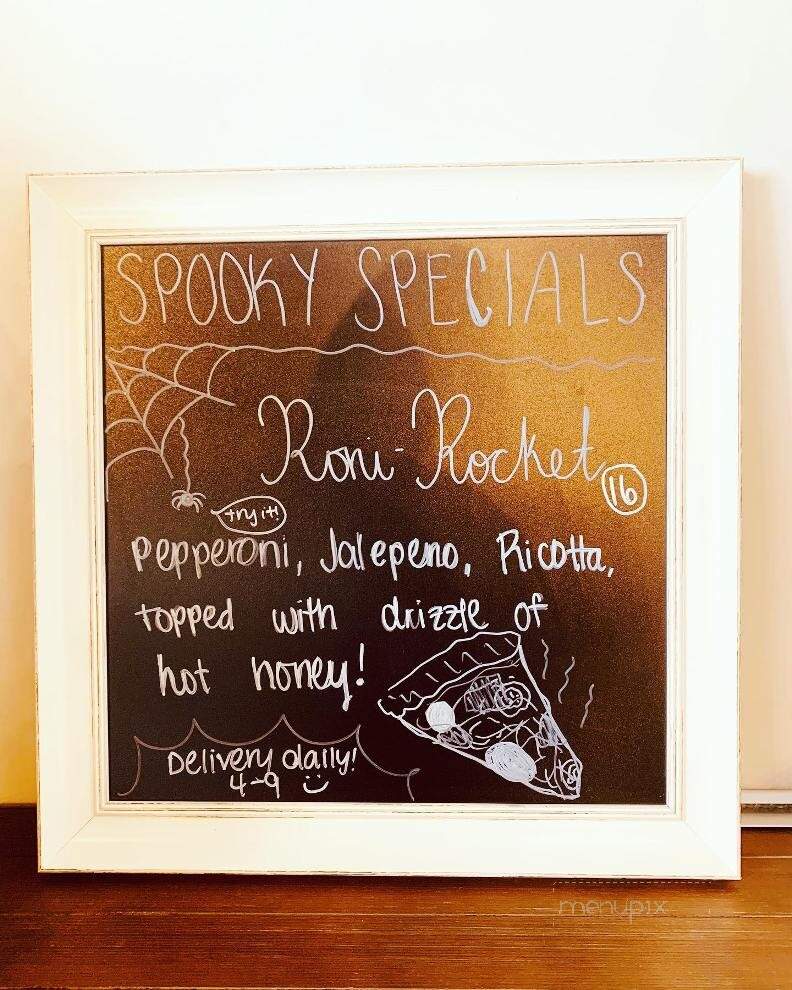 SPOOKY SPECIALS
Roni-Rocket
16
try it!
Pepperoni, Jalepeno, Ricotta,
topped with drizzle of
hot honey!
Delivery daily!
4-9
menupix